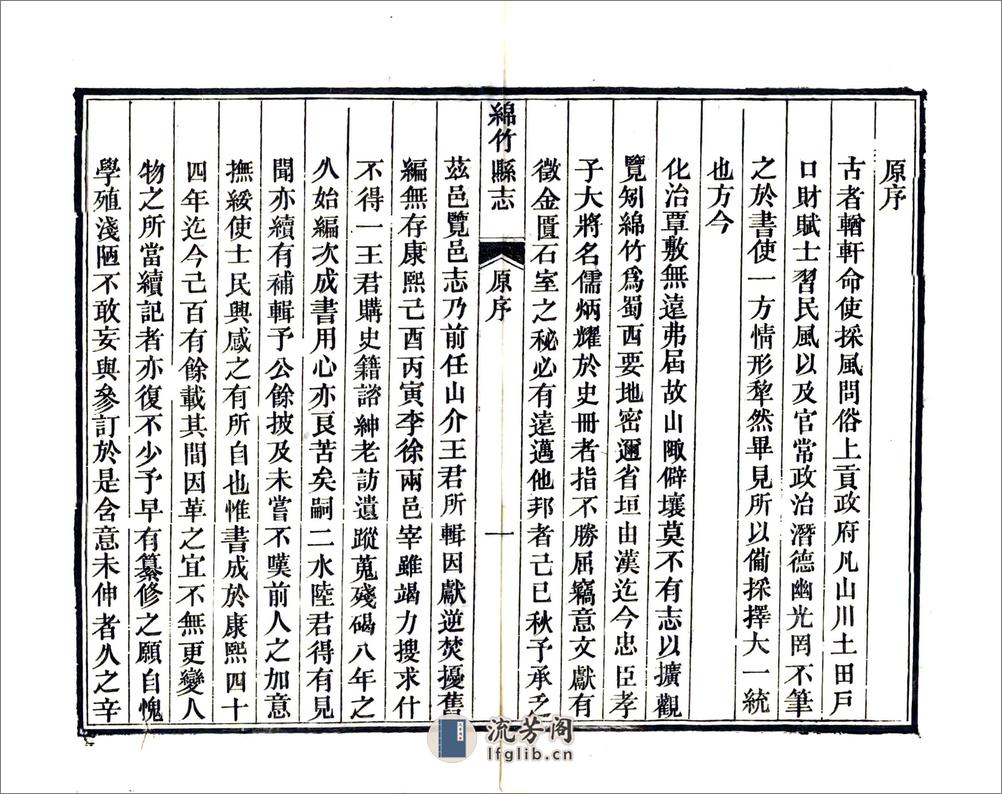 原序
古者輶軒命使採風問俗上貢政府凡山川土田戸
口財賦士習民風以及官常政治潛德幽光罔不筆
之於書使一方情形犂然畢見所以僃採擇大一統
也方今
化治覃敷無遠弗屆故山陬僻壤莫不有志以擴觀
覽矧綿竹爲蜀西要地密邇省垣由漢迄今忠臣孝
子大將名儒炳耀於史冊者指不勝屈竊意文獻有
徵金匱石室之秘必有遠邁他邦者己巳秋予承乏
綿竹縣志
原序
一
茲邑覽邑志乃前任山介王君所輯因獻逆焚擾舊
編無存康熙己酉丙寅李徐兩邑宰雖竭力搜求什
不得一王君購史籍諮紳老訪遺蹤蒐殘碣八年之
久始編次成書用心亦良苦矣嗣二水陸君得有見
聞亦續有補輯予公餘披及未嘗不嘆前人之加意
撫綏使士民興感之有所自也惟書成於康熙四十
四年迄今己百有餘載其間因革之宜不無更變人
物之所當續記者亦復不少予早有纂修之願自愧
學殖淺陋不敢妄與參訂於是含意未伸者久之辛
流芳阁
lfglib.cn